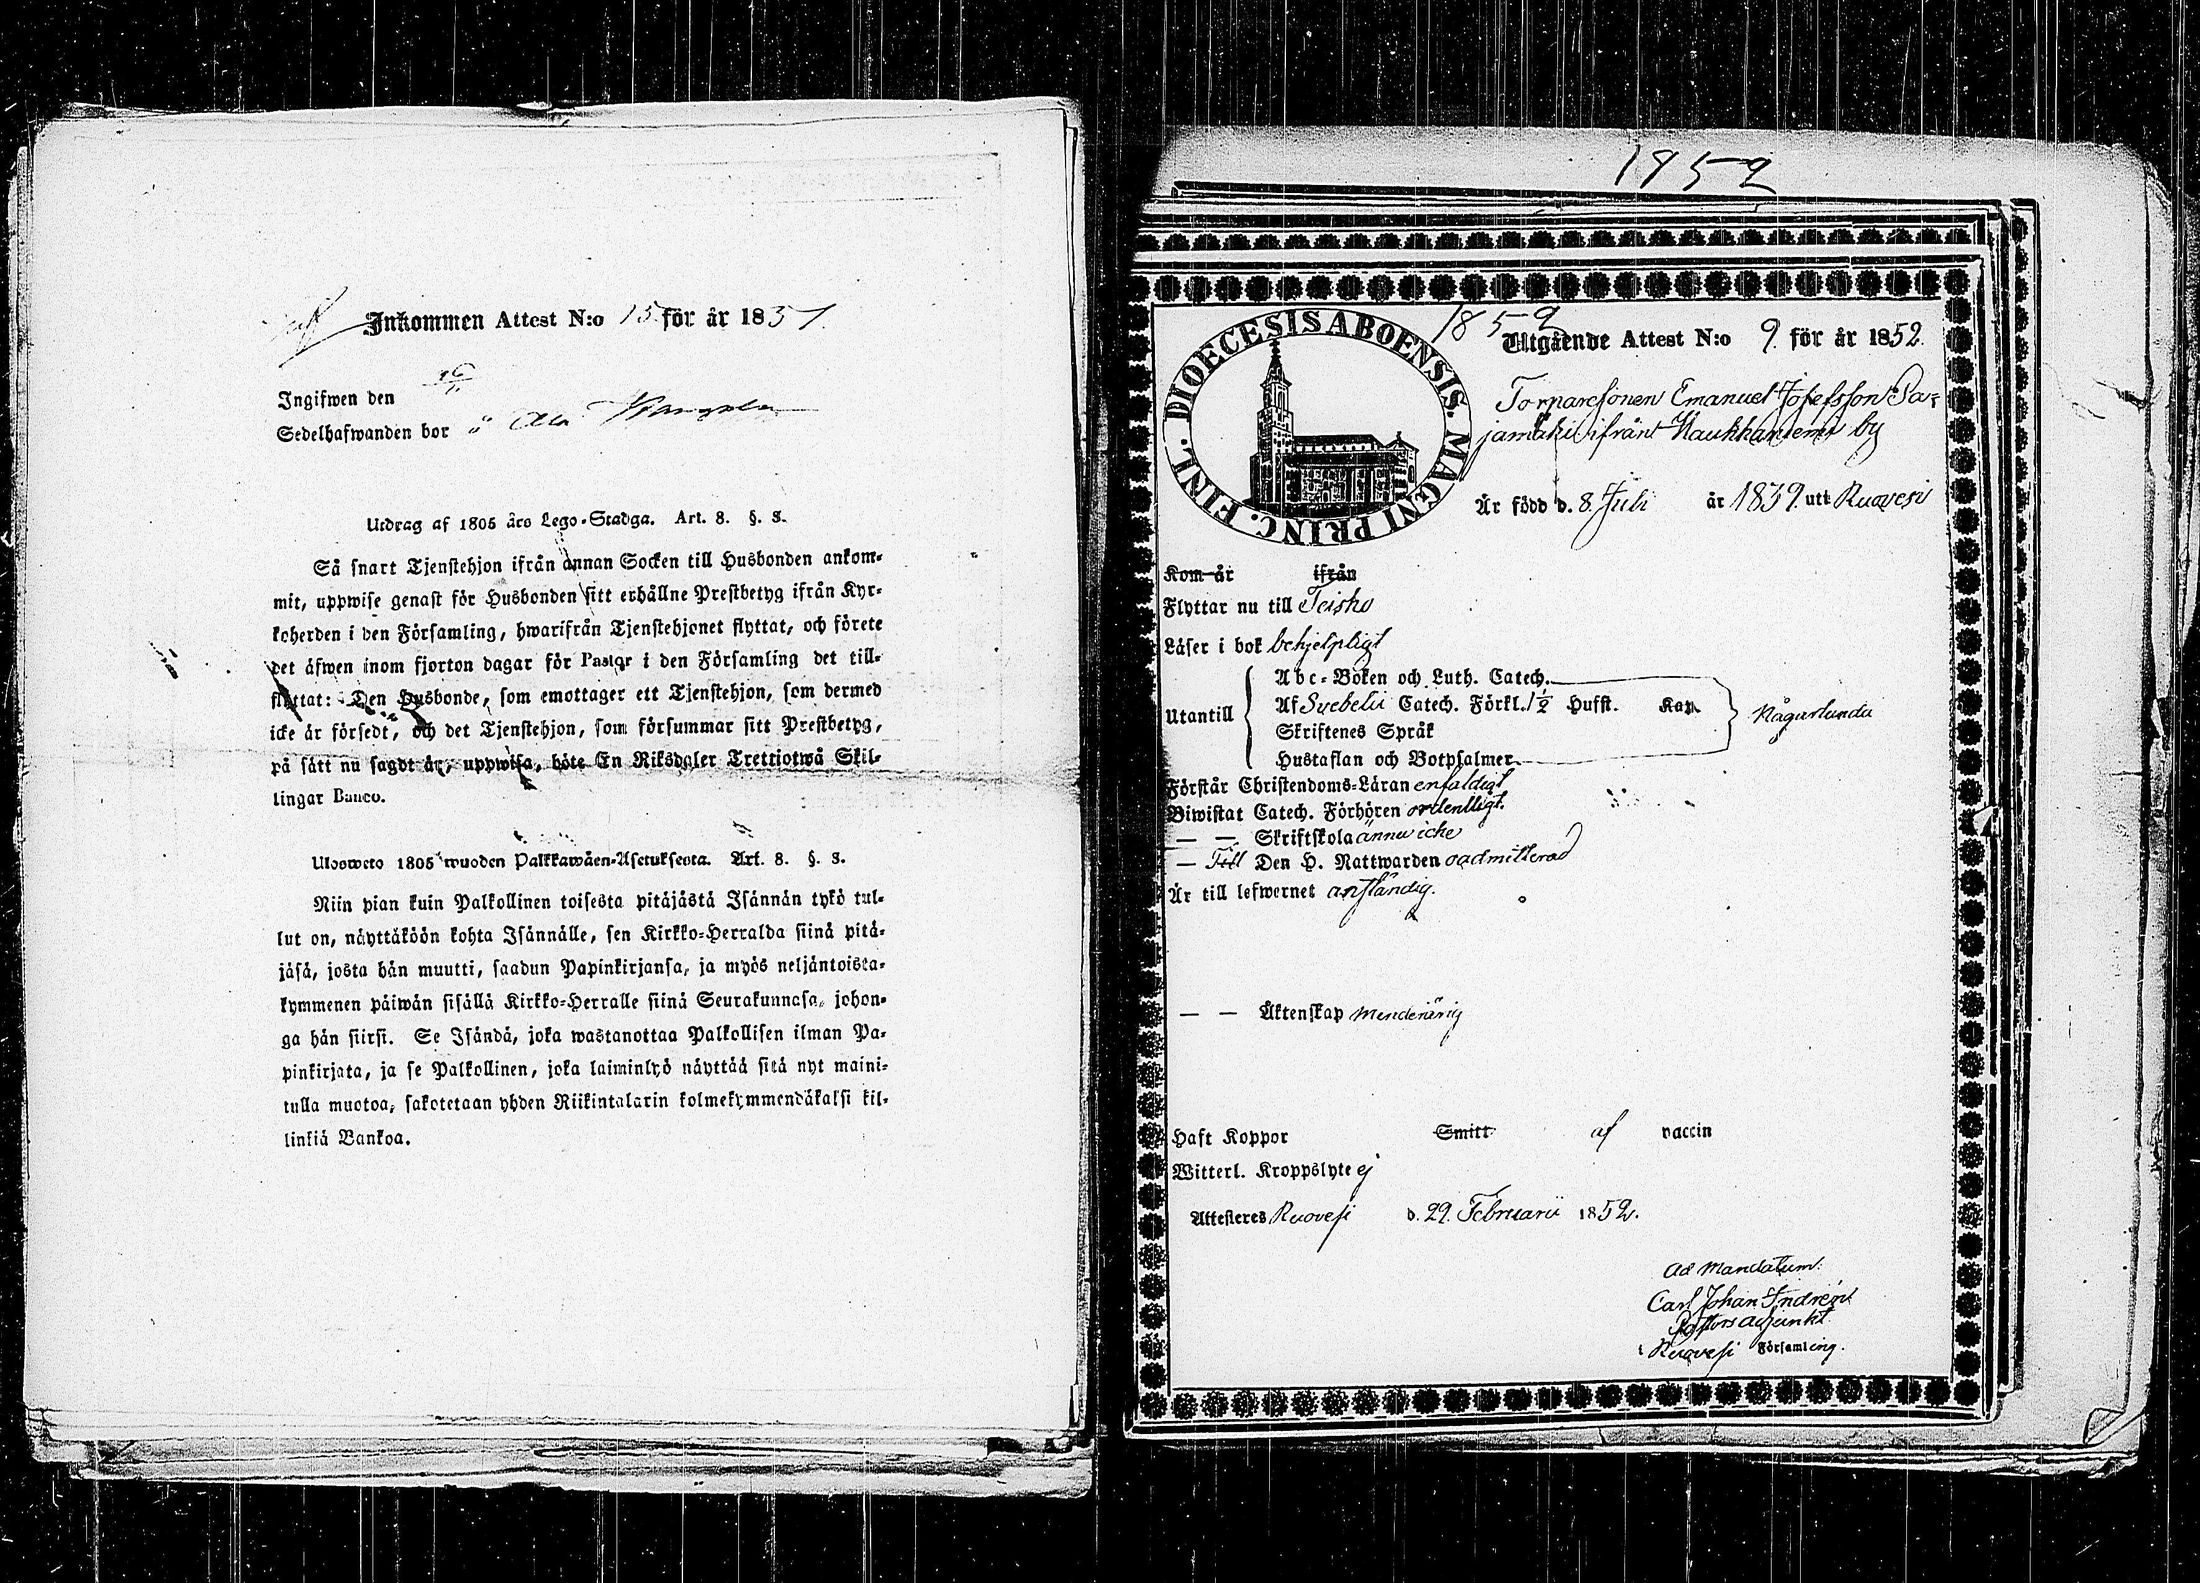 Inkommen Attest N:o 15 för år 1851.
Ingifwen den 16/11
Sedelhafwanden bor å Ala
Utdrag af 1805 års Lego-Stadga. Art. 8. §. 3.
Så snart Tjenstehjon ifrån annan Socken till Husbonden ankom-
mit, uppwise genast för Husbonden sitt erhållne Prestbetyg ifrån Kyr-
koherden i den Församling, hwarifrån Tjenstehjonet flyttat, och förete
det äfwen inom fjorton dagar för Pastor i den Församling det till-
flyttat: Den Husbonde, som emottager ett Tjenstehjon, som dermed
icke är försedt, och det Tjenstehjon, som försummar sitt Prestbetyg,
på sätt nu sagdt är, uppwisa, böte En Riksdaler Trettiotwå Skil-
lingar Banco.
Ulosweto 1805 wuoden Palkkawäen-Asetuksesta. Art. 8. §. 3.
Niin pian kuin Palkollinen toisesta pitäjästä Isännän tykö tul-
lut on, näyttäköön kohta Isännälle, sen Kirkko-Herralda siinä pitä-
jäsä, josta hän muutti, saadun Papinkirjansa, ja myös neljäntoista-
kymmenen päiwän sisällä Kirkko-Herralle siinä Seurakunnasa, johon-
ga hän siirsi. Se Isändä, joka wastanottaa Palkollisen ilman Pa-
pinkirjata, ja se Palkollinen, joka laiminlyö näyttää sitä nyt maini-
tulla muotoa, sakotetaan yhden Riikintalarin kolmekymmendäkaksi kil-
linkiä Bankoa.
1852
DIOECESIS ABOENSIS. MAGNI PRINC. FINL.
1852
Utgående Attest N:o 9 för år 1852.
Torparesonen Emanuel Josefsson Pa-
jamäki ifrån Kaukkaniemi by
Är född d. 8. Juli år 1839. uti Ruovesi
Kom år ifrån
Flyttar nu till Teisko
Läser i bok behjelpligt
Utantill
Abc-Boken och Luth. Catech.
Af Svebelii Catech. Förkl. 1/2 Hufst. Kap.
Skriftenes Språk
Hustaflan och Botpsalmer
Någorlunda
Förstår Christendoms-Läran enfaldigt
Biwistat Catech. Förhören ordentligt.
— — Skriftskola ännu icke
— Till Den H. Nattwarden oadmitterad
Är till lefwernet anständig.
— — Äktenskap minderårig
Haft Koppor Smitt af vaccin
Witterl. Kroppslyte ej
Attesteres Ruovesi d. 29. Februarii 1852.
Ad Mandatum:
Carl Johan Indrén
Pastors adjunkt
i Ruovesi Församling.